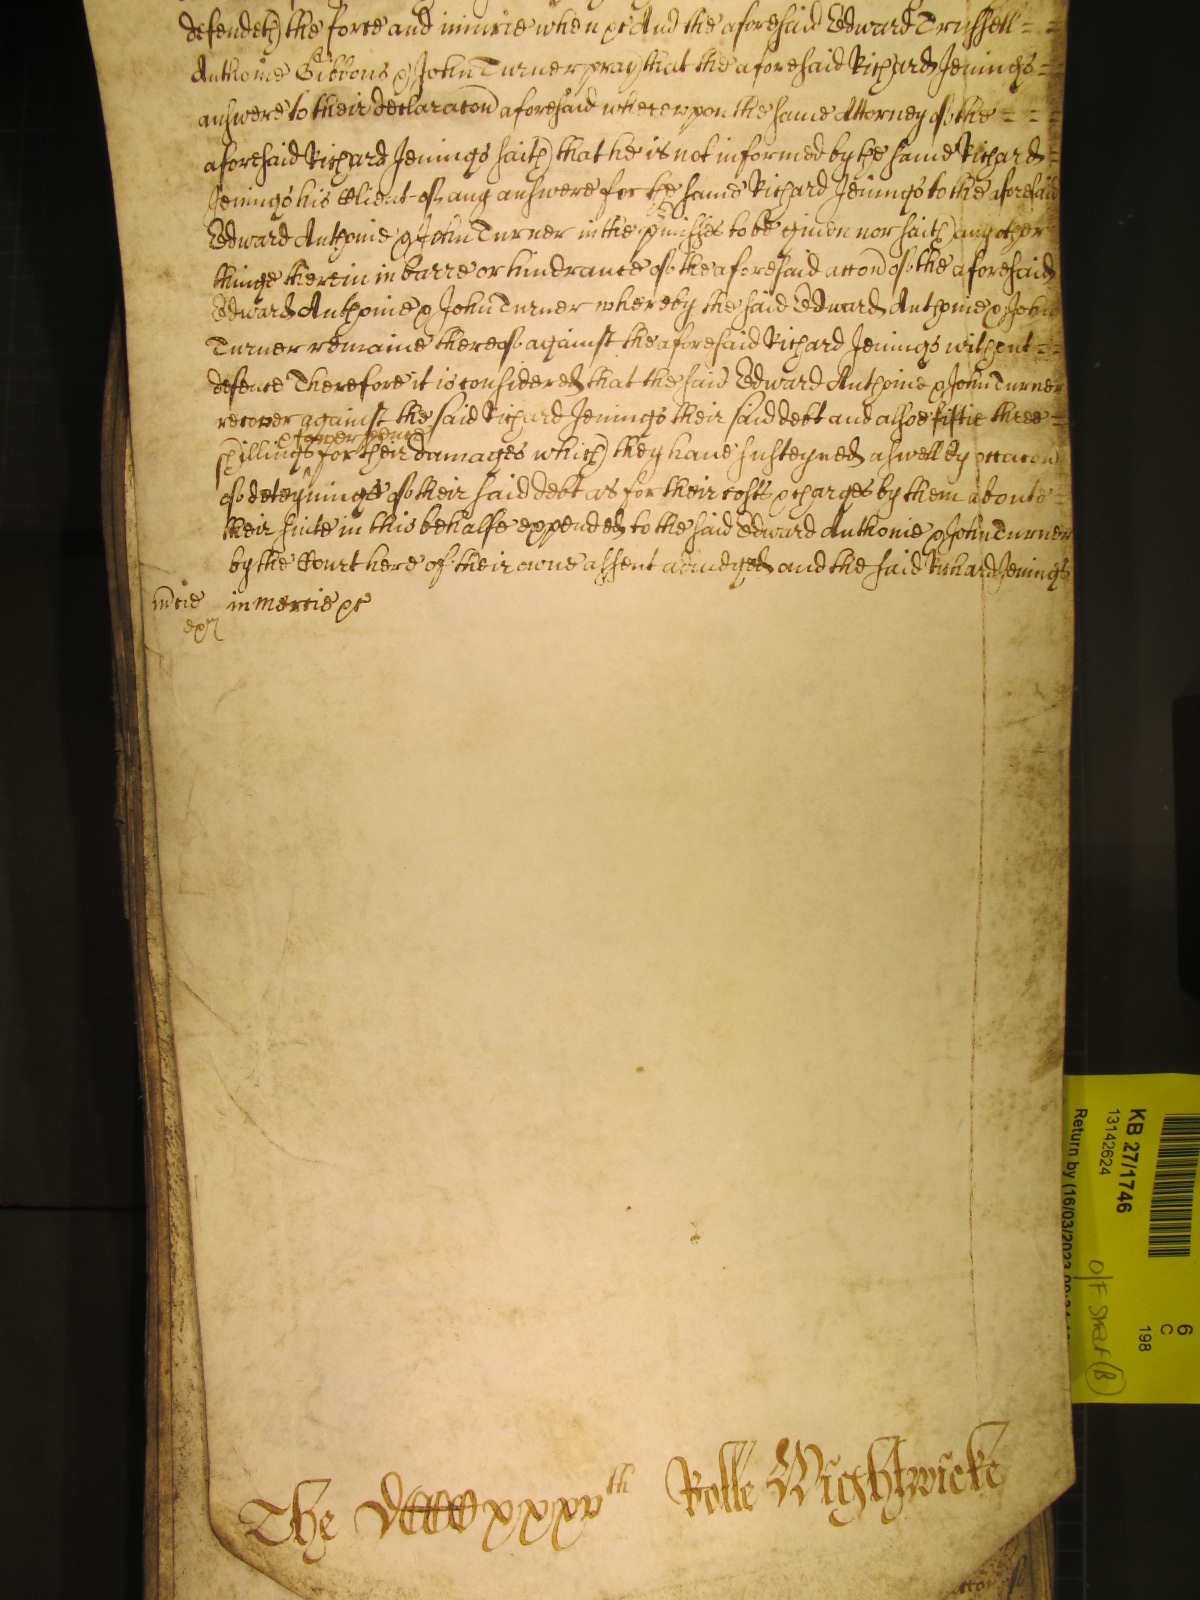 defendeth the force and iniurie when &c And the aforesaid Edward Trussell = =
Anthonie Gibbons & John Turner pray that the aforesaid Richard Jenings = =
answere to their declaracon aforesaid whereupon the same Attorney of the = = =
aforesaid Richard Jenings saith that he is not informed by the same Richard =
Jenings his Client of any answere for the same Richard Jenings to the aforesaid
Edward Anthonie & John Turner in the pmisses to be given nor saith any other
thinge therein in barre or hindrance of the aforesaid accon of the aforesaid
Edward Anthonie & John Turner whereby the said Edward Anthonie & John
Turner remaine thereof against the aforesaid Richard Jenings without = =
defence Therefore it is considered that the said Edward Anthonie & John Turner
recover against the said Richard Jenings their said debt and alsoe fiftie three =
& fower pence
shillings for their damages which they have susteyned aswell by occacon
of deteyninge of their said debt as for their costs & charges by them aboute =
their suite in this behalfe expended to the said Edward Anthonie & John Turner
by the Court here of their owne assent adiudged and the said Richard Jenings
mcie in mercie &c
expr
The Dccccxxxv th Rolle Wightwicke
KB 27/1746
13142624
Return by (16/03/2023
6
C
198
O/F